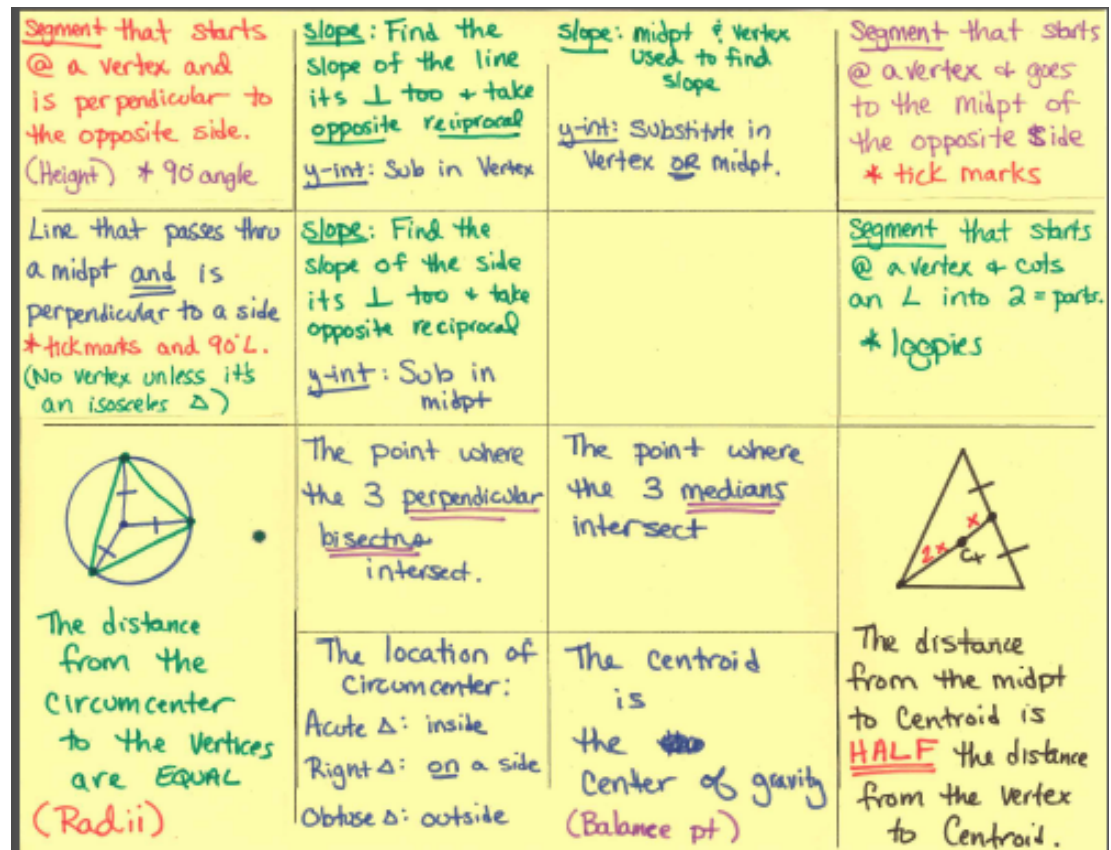 Segment that starts
@ a vertex and
is perpendicular to
the opposite side.
(Height) * 90° angle
slope: Find the
slope of the line
its ⊥ too + take
opposite reciprocal
y-int: Sub in Vertex
slope: midpt & vertex
used to find
slope
y-int: Substitute in
Vertex OR midpt.
Segment that starts
@ a vertex + goes
to the midpt of
the opposite side
* tick marks
Line that passes thru
a midpt and is
perpendicular to a side
* tick marks and 90° ∠.
(No vertex unless it's
an isosceles Δ)
slope: Find the
slope of the side
its ⊥ too + take
opposite reciprocal
y-int: Sub in
midpt
Segment that starts
@ a vertex + cuts
an ∠ into 2 = parts.
* loopies
The distance
from the
Circumcenter
to the vertices
are EQUAL
(Radii)
The point where
the 3 perpendicular
bisectors
intersect.
The location of
Circumcenter:
Acute Δ: inside
Right Δ: on a side
Obtuse Δ: outside
The point where
the 3 medians
intersect
The Centroid
is
the
Center of gravity
(Balance pt)
x
2x
The distance
from the midpt
to Centroid is
HALF the distance
from the vertex
to Centroid.